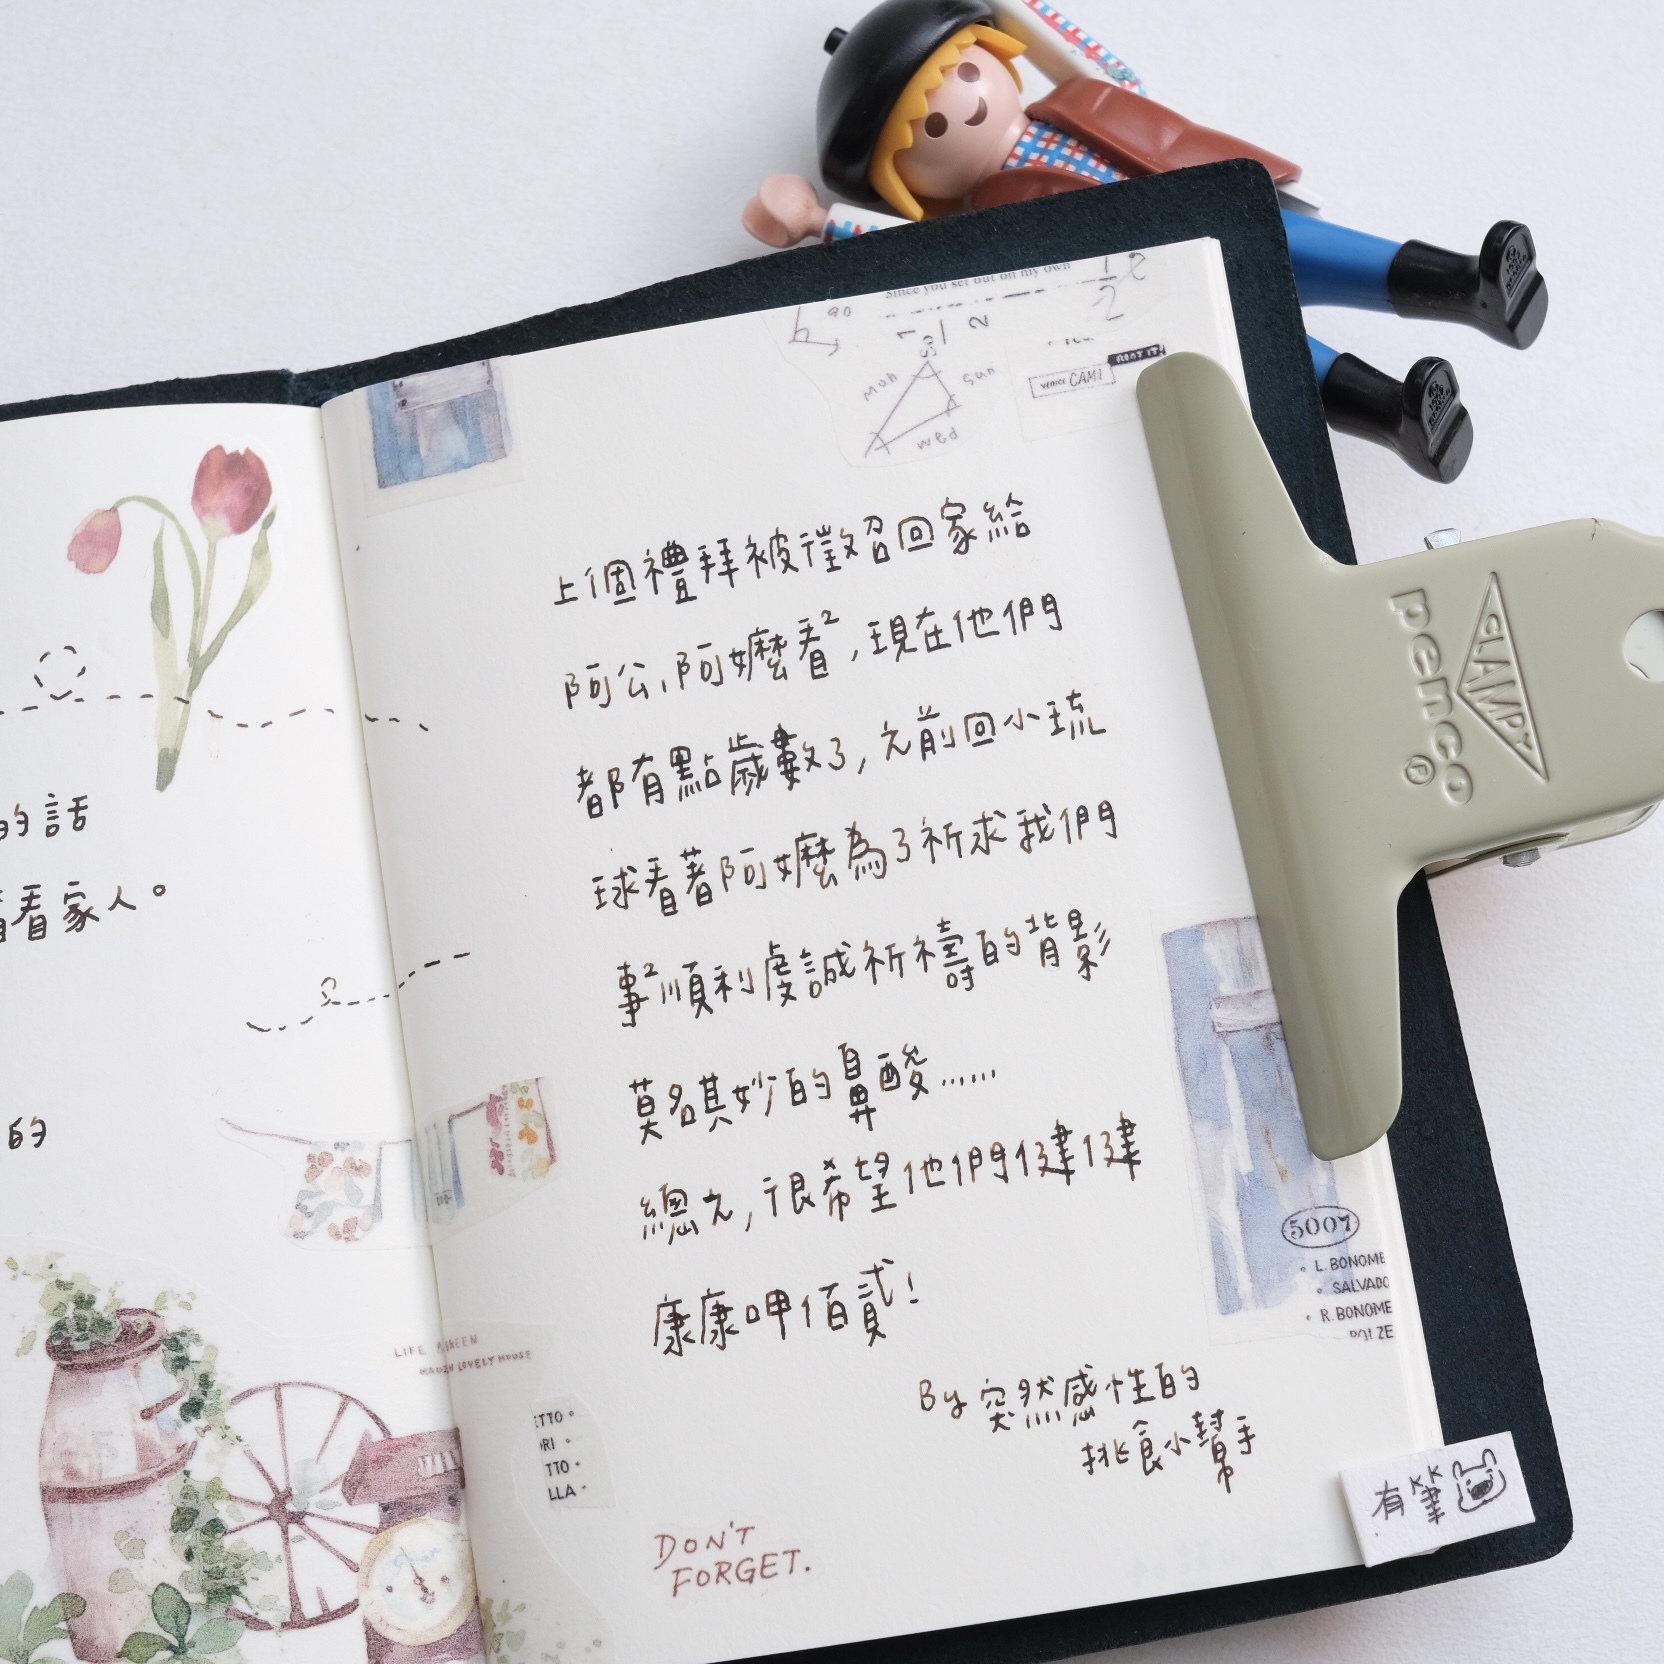 的話
看家人。
的
Since you set out on my own
1/2
90
1
2
Mon
Sun
wed
VENICE CAMI
RENT IT
上個禮拜被徵召回家給
阿公、阿嬤看²,現在他們
都有點歲數了,之前回小琉
球看著阿嬤為了祈求我們
事²順利虔誠祈禱的背影
莫名其妙的鼻酸……
總之,很希望他們健健
康康呷佰貳!
By 突然感性的
挑食小幫手
DON'T
FORGET.
LIFE GREEN
LOVELY HOUSE
ETTO
ORI
TTO
LLA
5007
L. BONOME
SALVADO
R. BONOME
POLZE
有筆
CLAMPY
penco